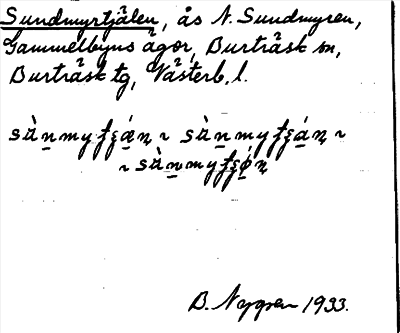 Sundmyrtjälen, ås N. Sundmyren,
Gammelbyns ägor, Burträsk sn,
Burträsk tg, Västerb. l.
B. Nygren 1933.